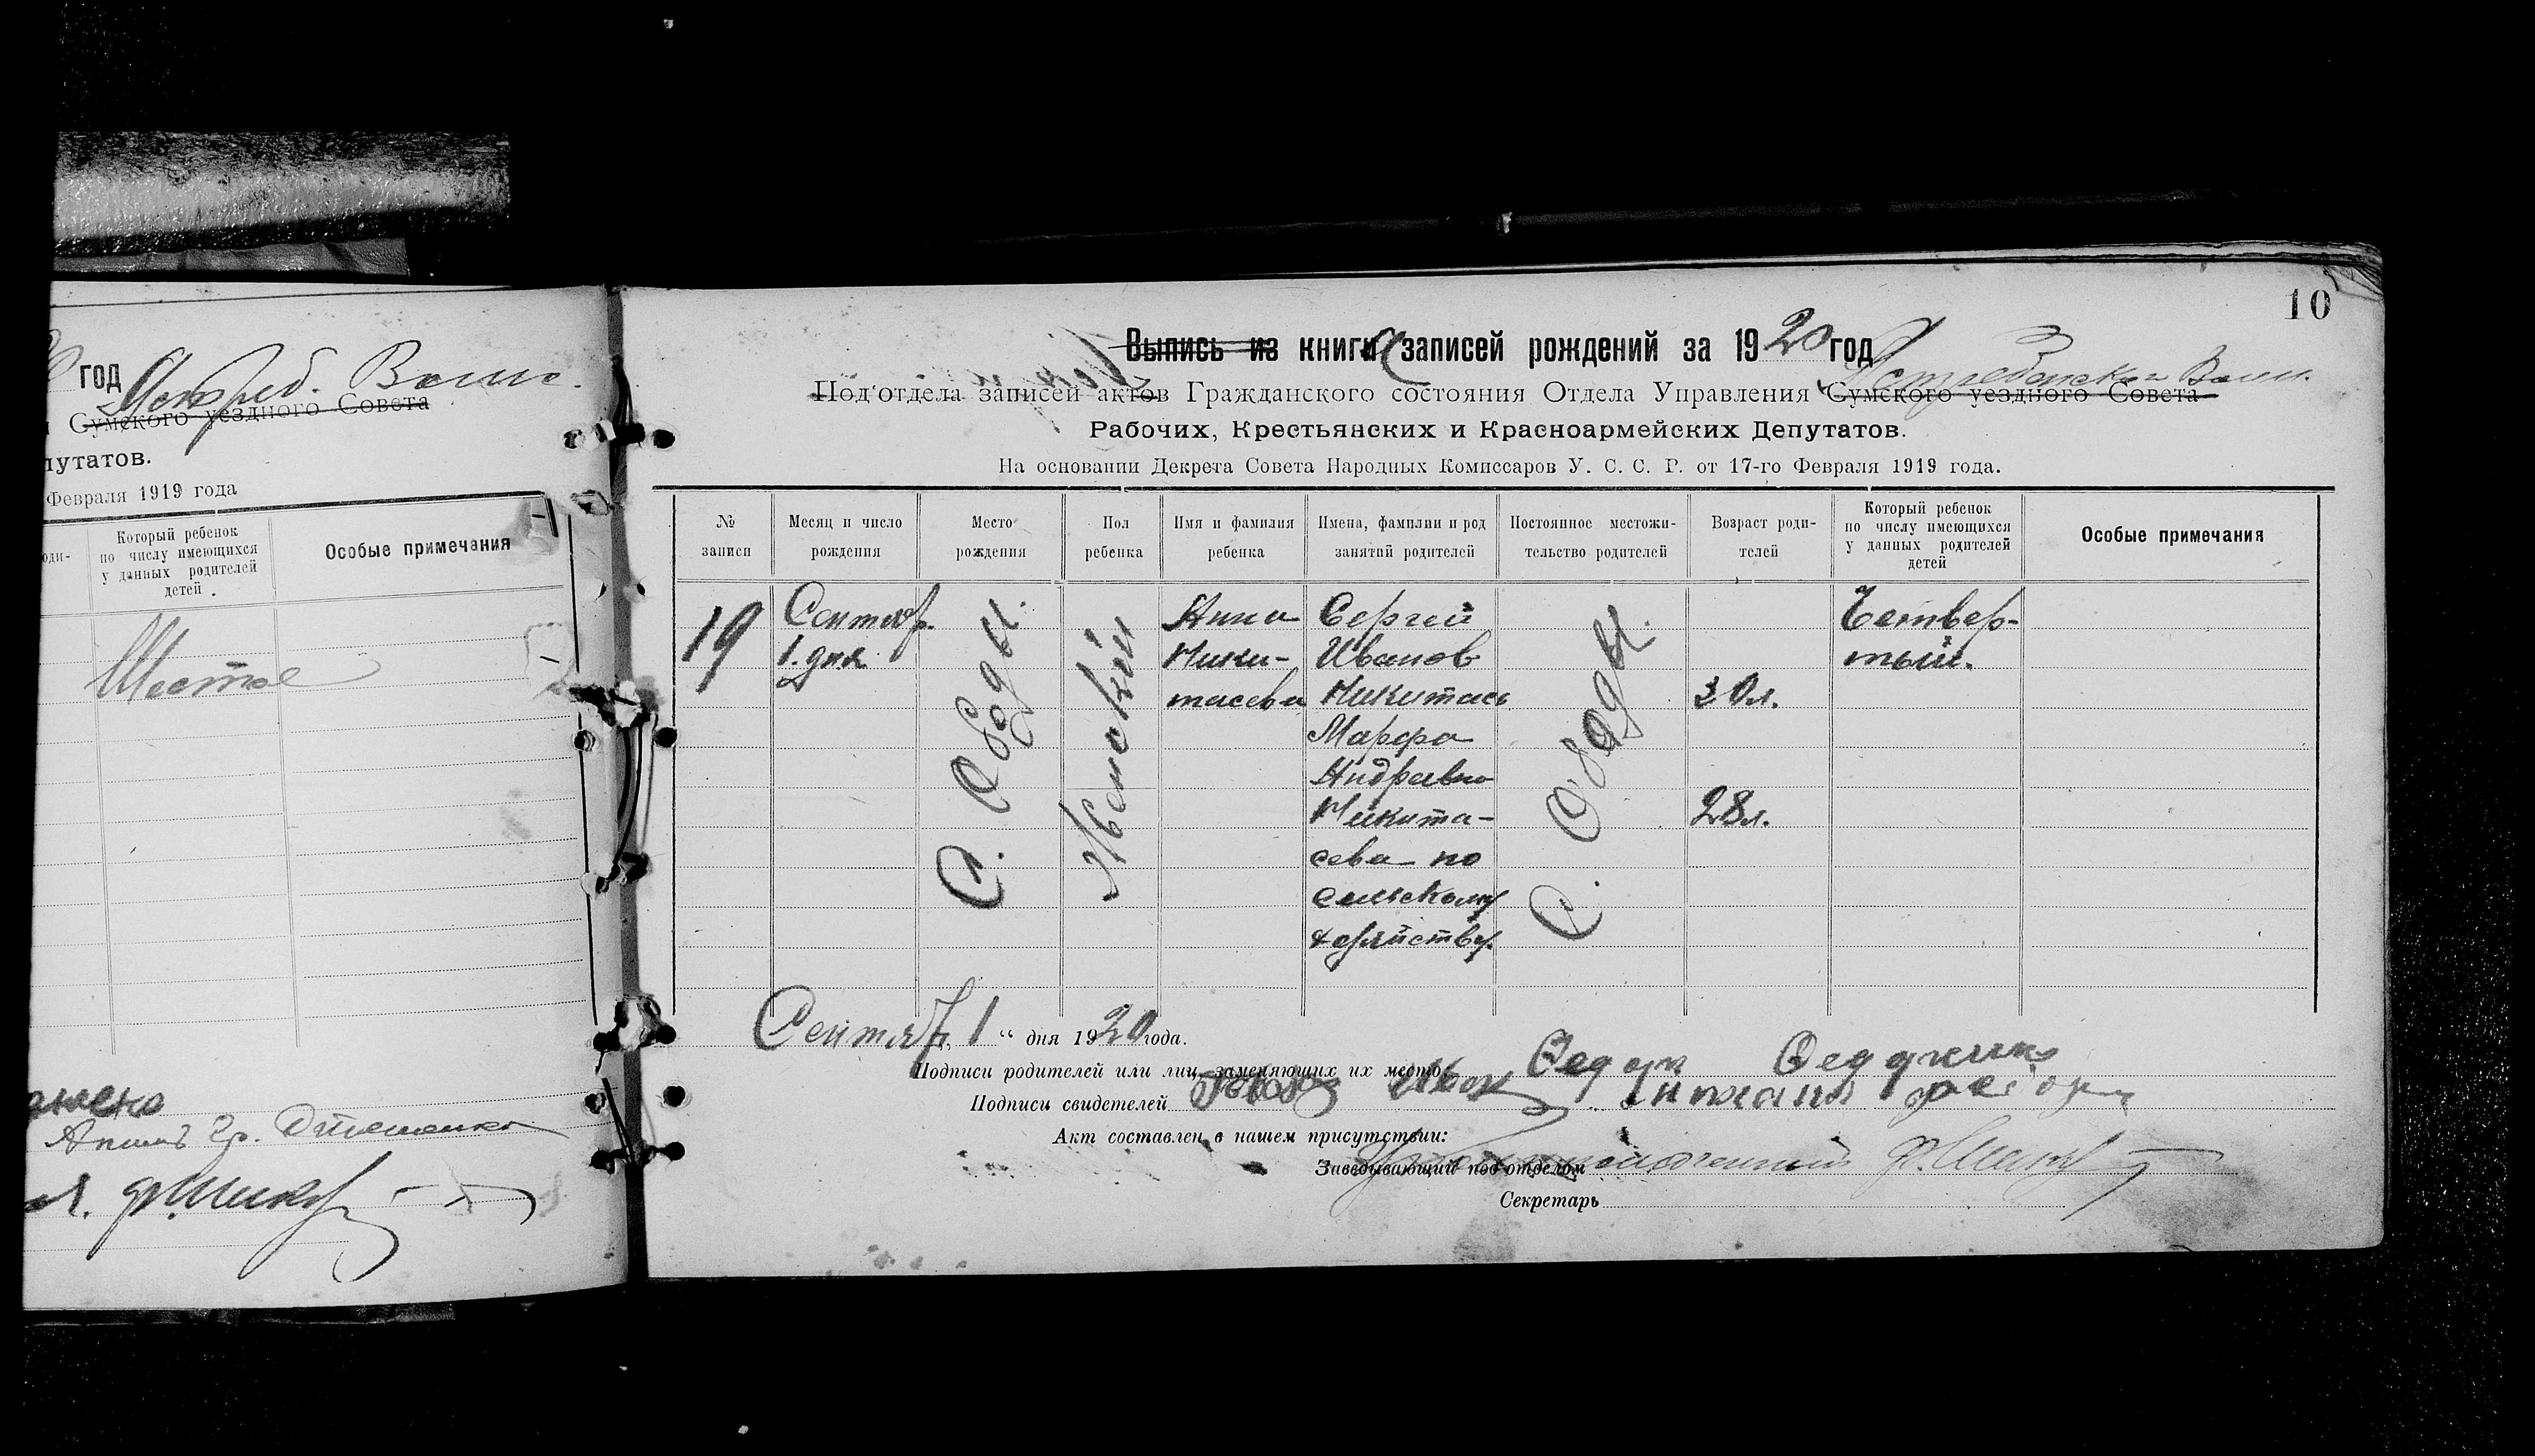 год Ястреб. Волис.
Сумского уездного Совета
путатов.
Февраля 1919 года
оди-
Который ребенок
по числу имеющихся
у данных родителей
детей
Особые примечания
Шестое
10
Выпись из книги записей рождений за 1920 год
Под'отдела записей актов Гражданского состояния Отдела Управления Сумского уездного Совета
Рабочих, Крестьянских и Красноармейских Депутатов.
На основании Декрета Совета Народных Комиссаров У. С. С. Р. от 17-го Февраля 1919 года.
№
записи
Месяц и число
рождения
Место
рождения
Пол
ребенка
Имя и фамилия
ребенка
Имена, фамилии и род
занятий родителей
Постоянное местожи-
тельство родителей
Возраст роди-
телей
Который ребенок
по числу имеющихся
у данных родителей
детей
Особые примечания
19
Сентябр.
1. дня
С. Ободы.
Женский
Анна
Ники-
тасева
Сергей
Иванов
Никитась
Марфа
Андревна
Никита-
сева по
сельскому
хозяйству.
С. Ободы.
30л.
28л.
Четвер-
тый.
Сентяб. 1 “ дня 1920 года.
Подписи родителей или лиц, заменяющих их место
Подписи свидетелей
Акт составлен в нашем присутствии:
Заведывающий под‘отделом
Секретарь